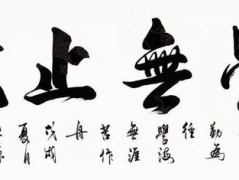 無止
勤為
徑
學海
無涯
苦作
舟
戊戌
夏月